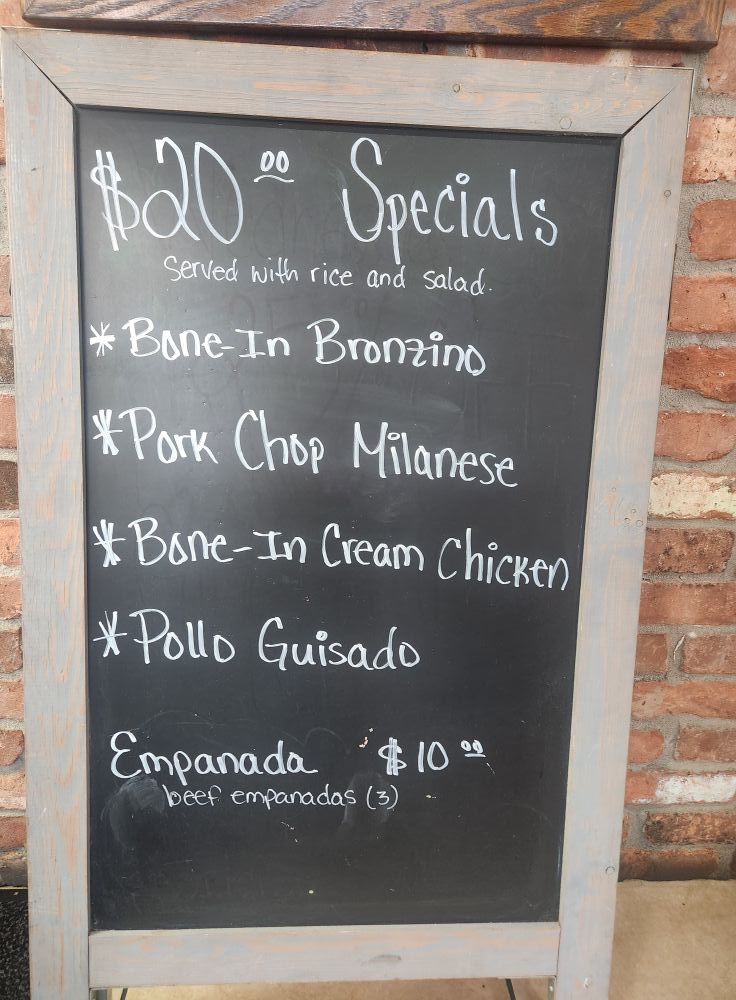 $20.00 Specials
Served with rice and salad.
* Bone-In Bronzino
* Pork Chop Milanese
* Bone-In Cream Chicken
* Pollo Guisado
Empanada $10.00
beef empanadas (3)